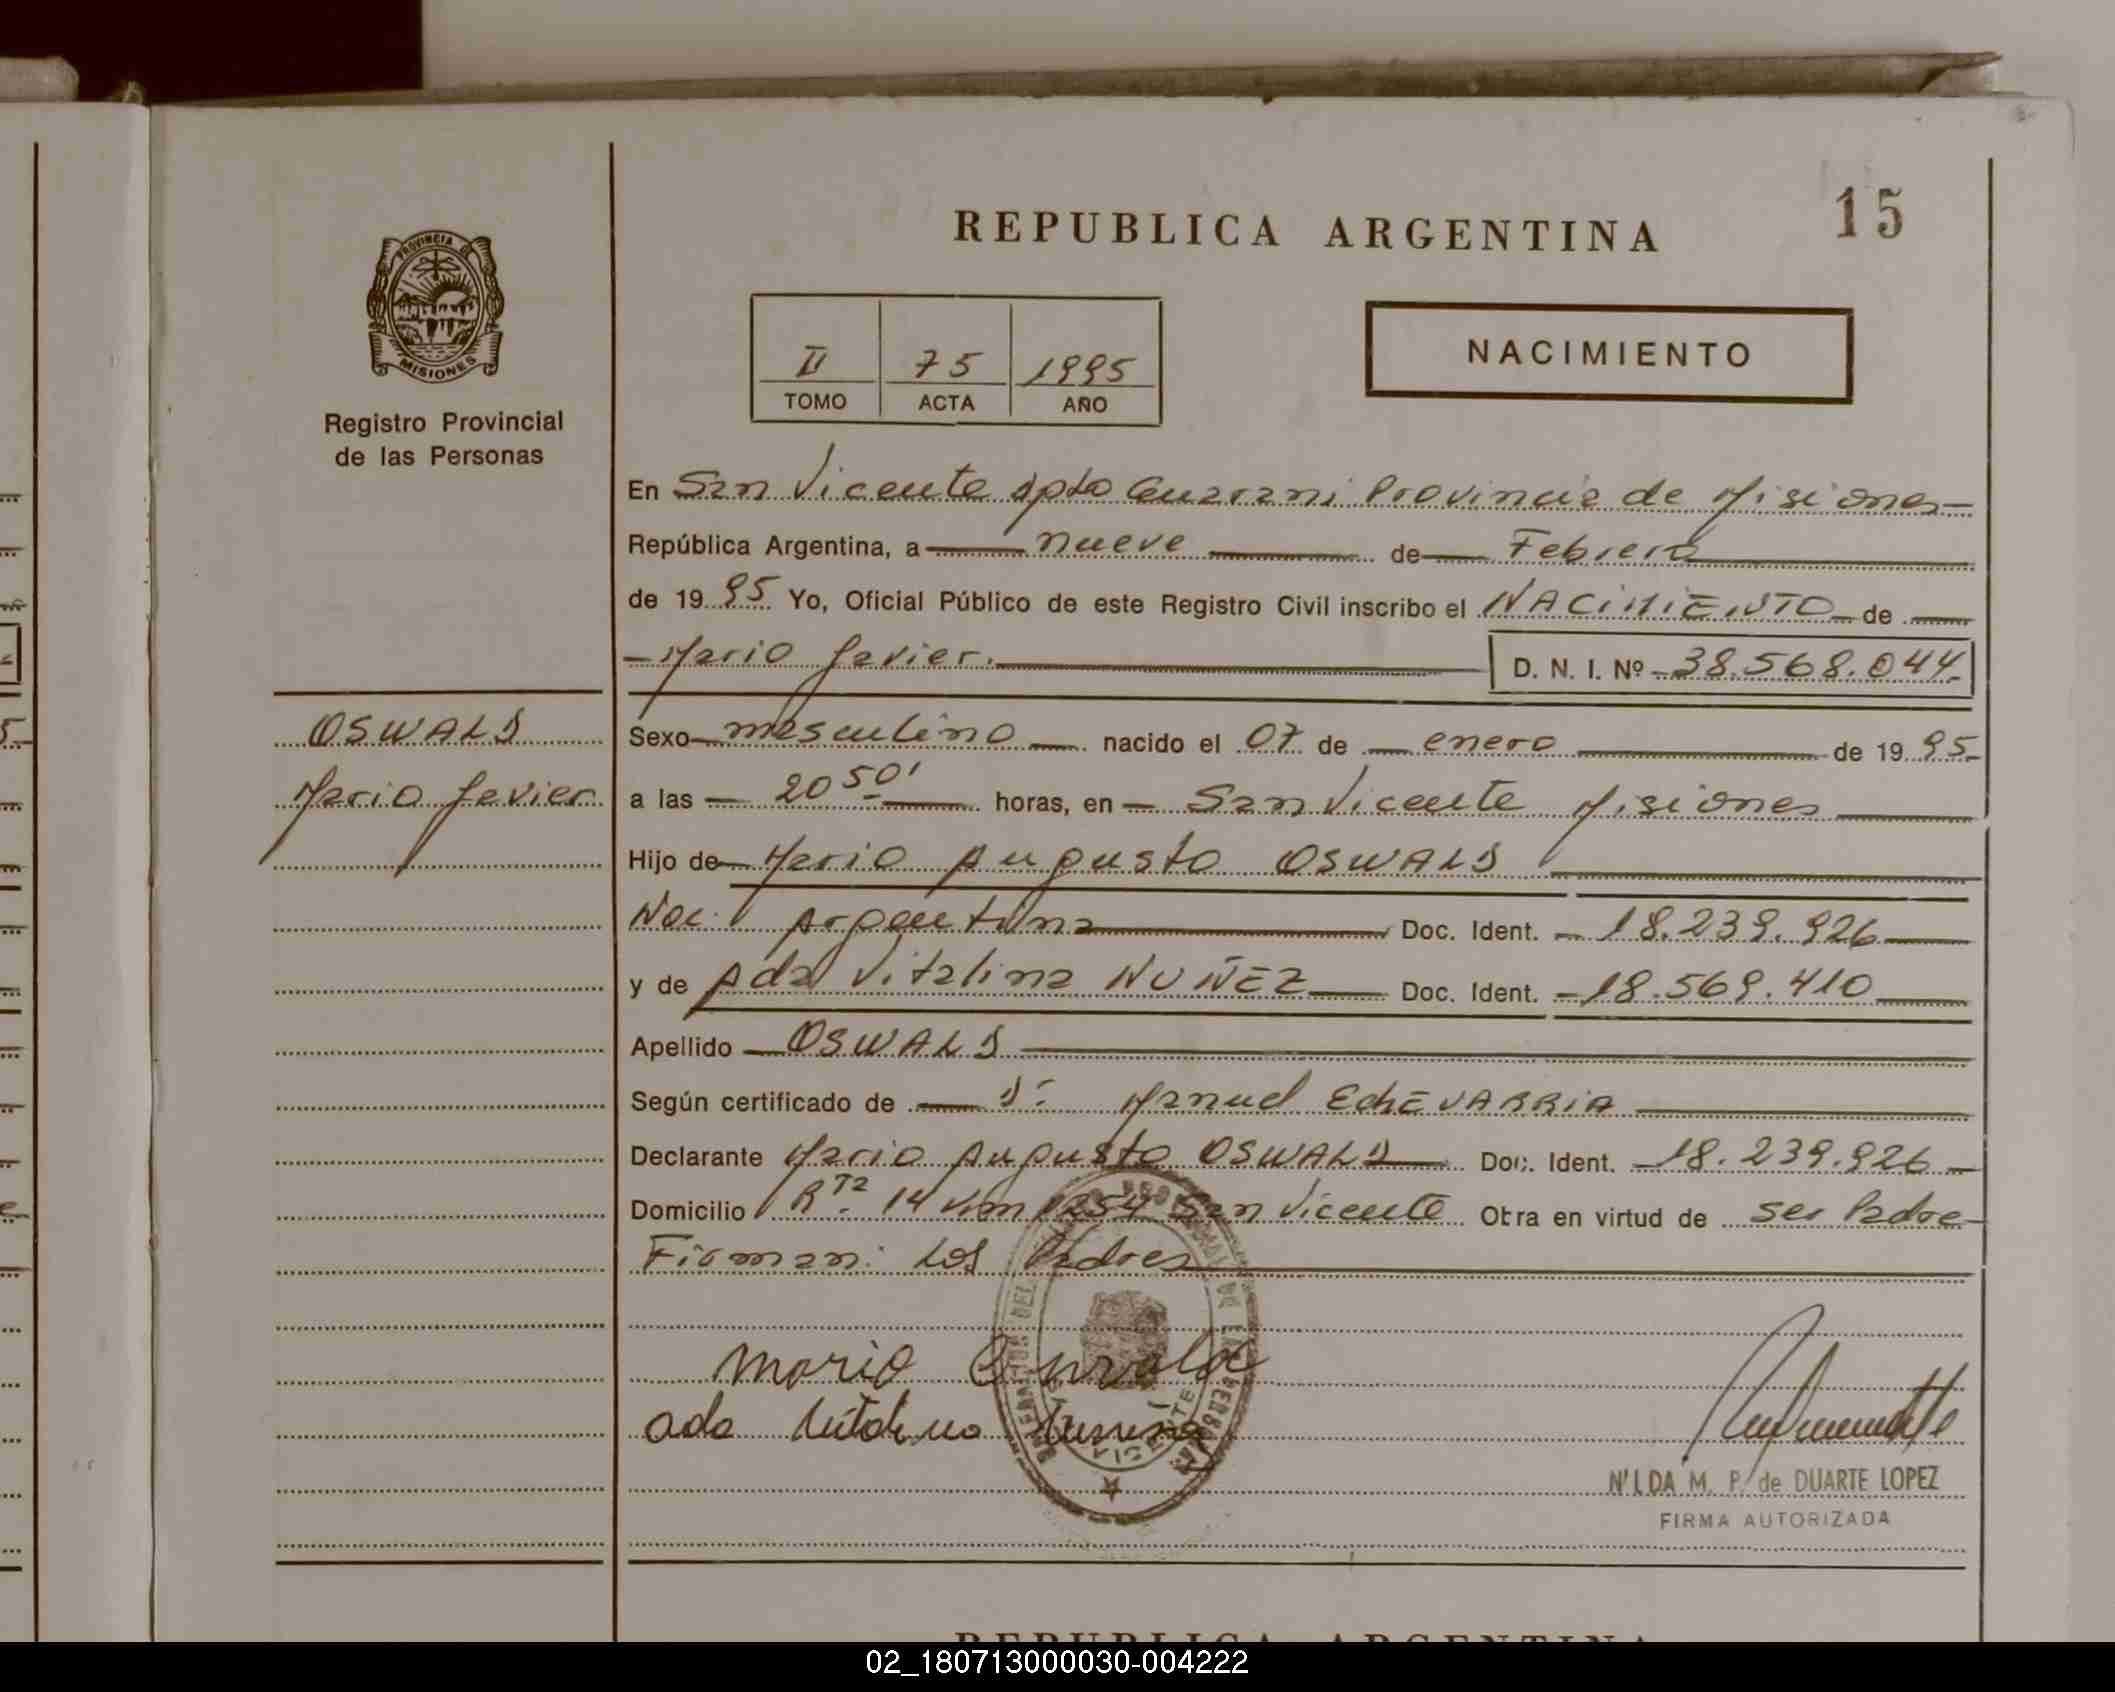 15
REPUBLICA ARGENTINA
NACIMIENTO
II 75 1995
TOMO ACTA AÑO
PROVINCIA DE
MISIONES
Registro Provincial
de las Personas
En San Vicente Dpto Guarani Provincia de Misiones
República Argentina, a nueve de Febrero
de 1995 Yo, Oficial Público de este Registro Civil inscribo el NACIMIENTO de
Mario Javier. D. N. I. Nº 38.568.044
OSWALD
Mario Javier
Sexo masculino nacido el 07 de enero de 1995
a las 20 50' horas, en San Vicente Misiones
Hijo de Mario Augusto OSWALD
Nac. Argentina Doc. Ident. 18.239.926
y de Ada Vitalina NUÑEZ Doc. Ident. 18.569.410
Apellido OSWALD
Según certificado de Dr Manuel EChEVARRIA
Declarante Mario Augusto OSWALD Doc. Ident. 18.239.926
Domicilio Rta. 14 Km 1254 San Vicente Otra en virtud de ser Padre
Firman: Los Padres
Mario Oswald
ada
VICENTE
N'LDA M. P. de DUARTE LOPEZ
FIRMA AUTORIZADA
REPUBLICA ARGENTINA
02_180713000030-004222